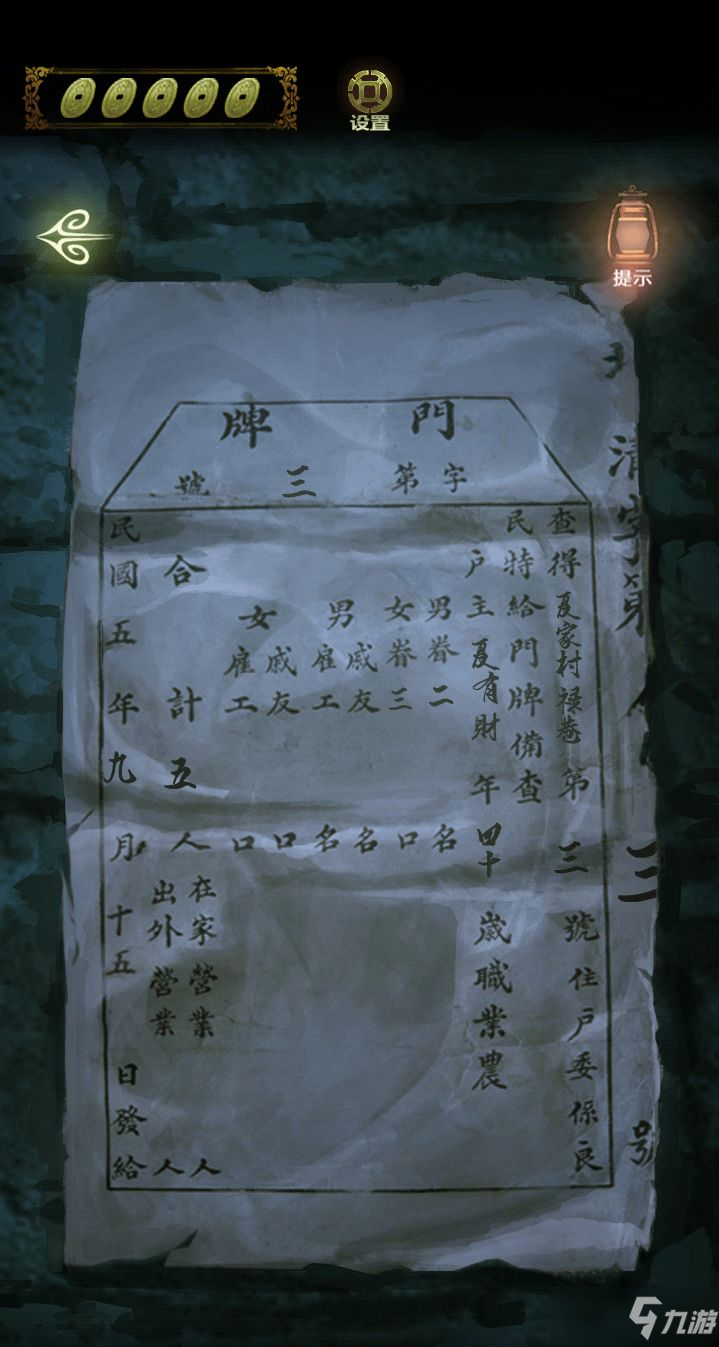 设置
提示
清字第
三
號
門牌
字第三號
查得夏家村禄巷第三號住戶委係良
民特給門牌備查
戶主夏有財年四十歲職業農
男眷二名
女眷三口
男
戚友名
雇工名
女
戚友口
雇工口
合計五人
在家營業人
出外營業人
民國五年九月十五日發給
九游